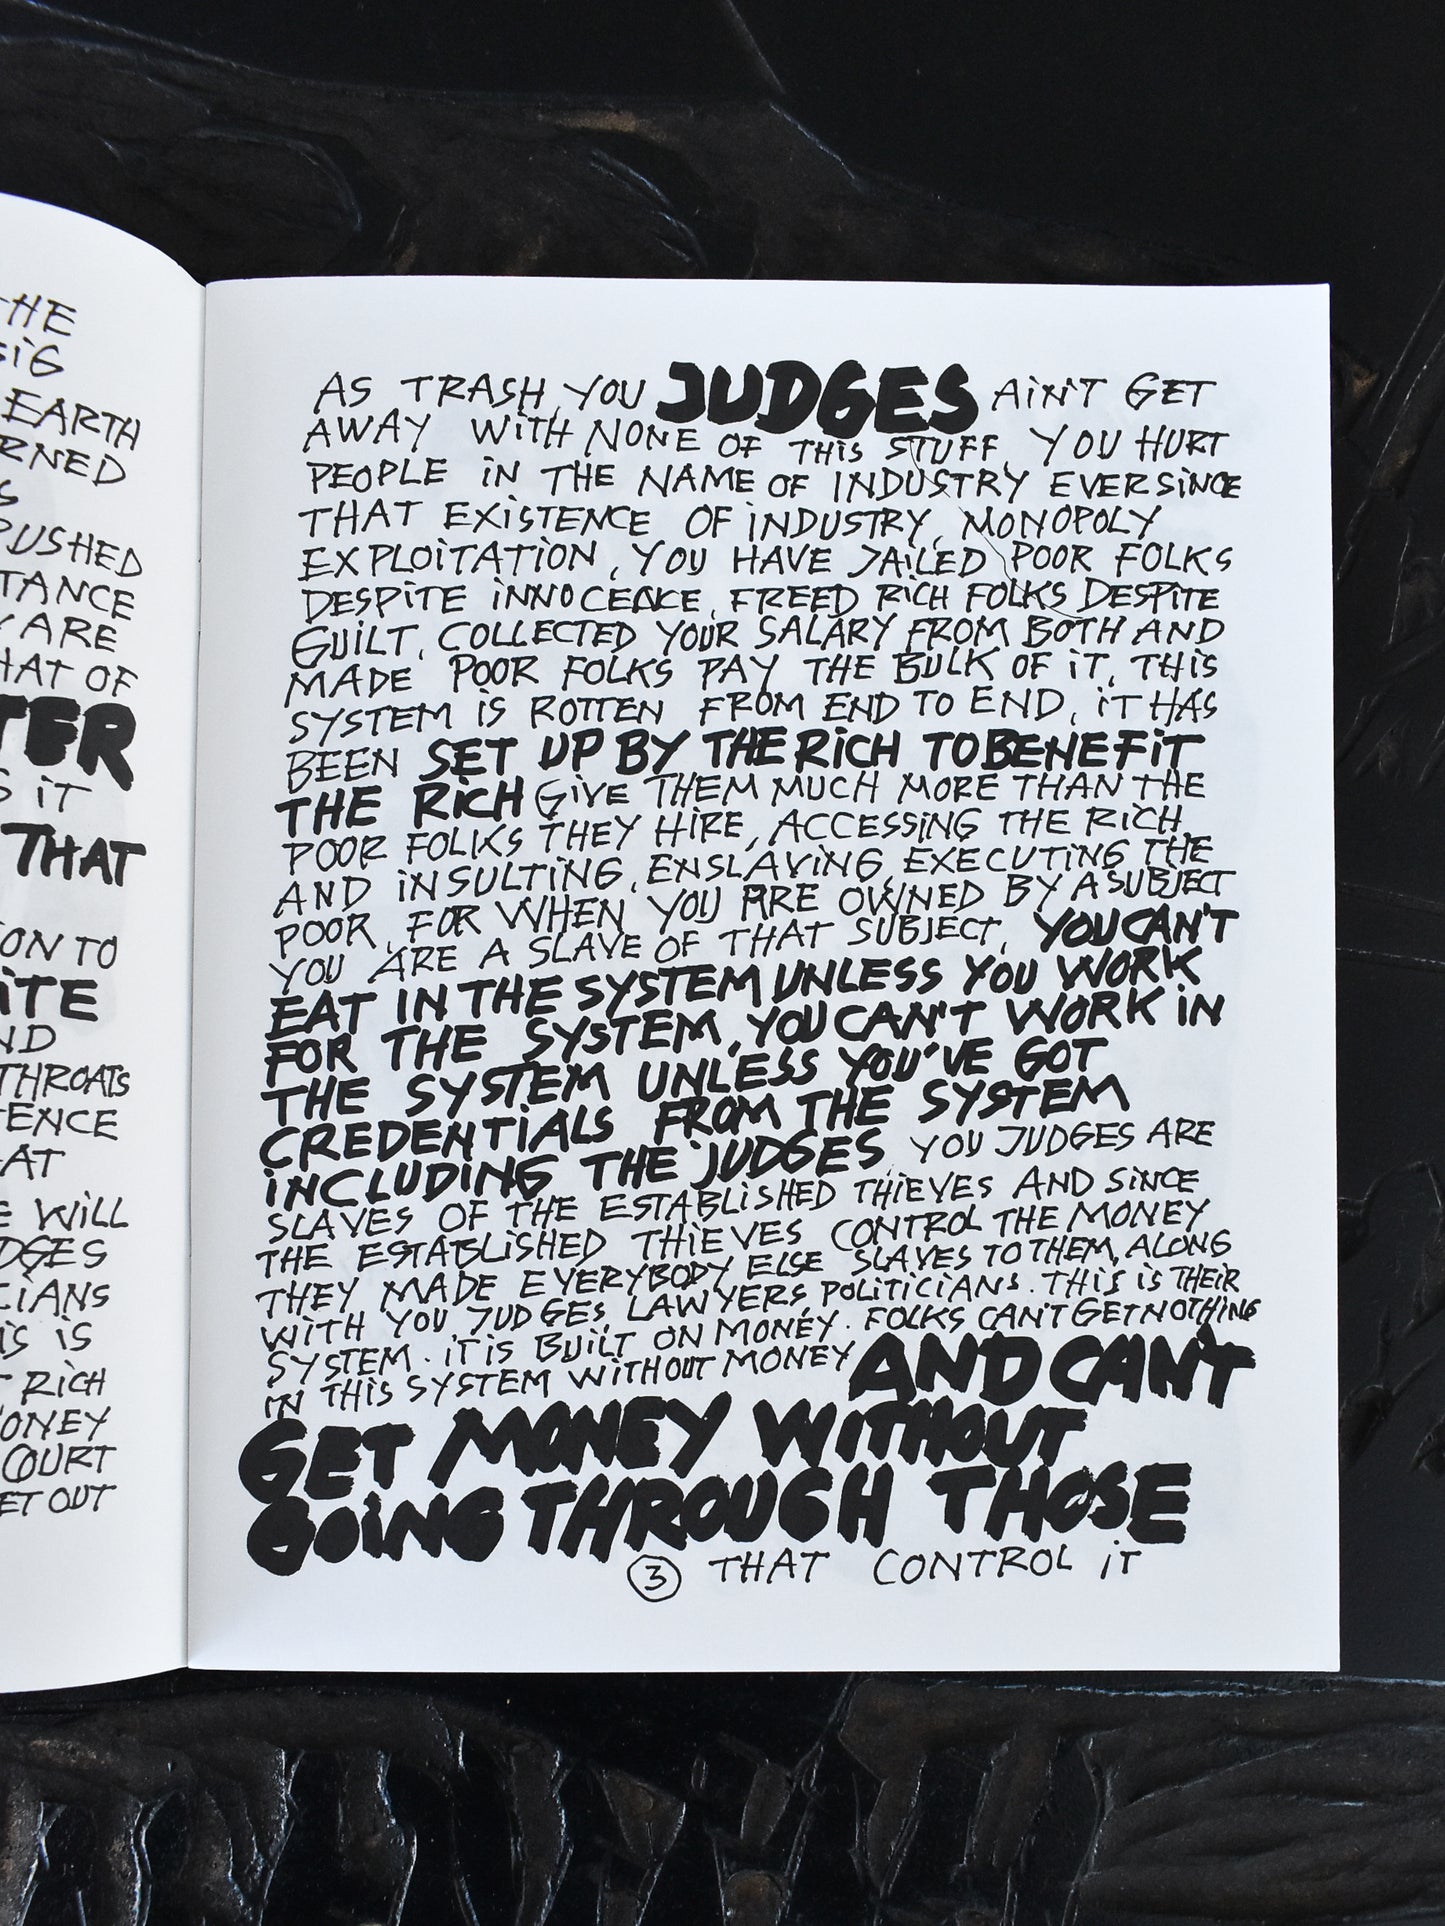 HE
SIG
EARTH
RNED
S
PUSHED
TANCE
Y ARE
HAT OF
TER
S IT
THAT
ON TO
ITE
ND
THROATS
TENCE
AT
E WILL
DGES
CIANS
IS IS
T RICH
ONEY
COURT
ET OUT
AS TRASH, YOU JUDGES AIN'T GET
AWAY WITH NONE OF THIS STUFF, YOU HURT
PEOPLE IN THE NAME OF INDUSTRY EVER SINCE
THAT EXISTENCE OF INDUSTRY, MONOPOLY
EXPLOITATION, YOU HAVE JAILED POOR FOLKS
DESPITE INNOCENCE, FREED RICH FOLKS DESPITE
GUILT, COLLECTED YOUR SALARY FROM BOTH AND
MADE POOR FOLKS PAY THE BULK OF IT, THIS
SYSTEM IS ROTTEN FROM END TO END, IT HAS
BEEN SET UP BY THE RICH TO BENEFIT
THE RICH GIVE THEM MUCH MORE THAN THE
POOR FOLKS THEY HIRE, ACCESSING THE RICH
AND INSULTING, ENSLAVING, EXECUTING THE
POOR, FOR WHEN YOU ARE OWNED BY A SUBJECT
YOU ARE A SLAVE OF THAT SUBJECT, YOU CAN'T
EAT IN THE SYSTEM UNLESS YOU WORK
FOR THE SYSTEM, YOU CAN'T WORK IN
THE SYSTEM UNLESS YOU'VE GOT
CREDENTIALS FROM THE SYSTEM
INCLUDING THE JUDGES YOU JUDGES ARE
SLAVES OF THE ESTABLISHED THIEVES AND SINCE
THE ESTABLISHED THIEVES CONTROL THE MONEY
THEY MADE EVERYBODY ELSE SLAVES TO THEM, ALONG
WITH YOU JUDGES, LAWYERS, POLITICIANS. THIS IS THEIR
SYSTEM. IT IS BUILT ON MONEY. FOLKS CAN'T GET NOTHING
IN THIS SYSTEM WITHOUT MONEY AND CAN'T
GET MONEY WITHOUT
GOING THROUGH THOSE
3 THAT CONTROL IT